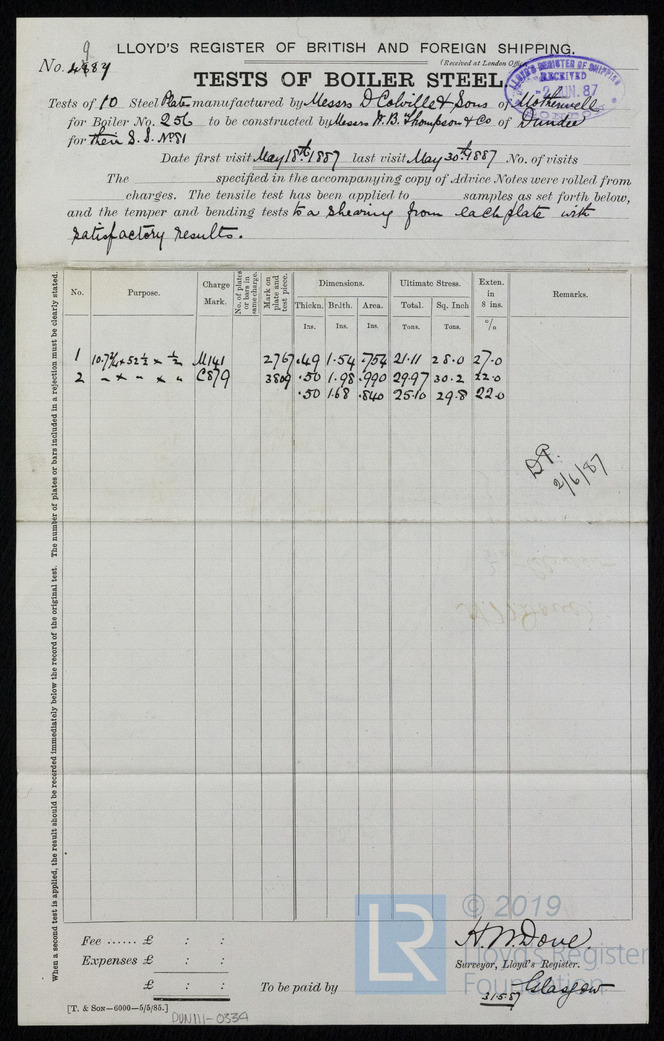 LLOYD'S REGISTER OF BRITISH AND FOREIGN SHIPPING.
No. 4984
9
(Received at London Office
TESTS OF BOILER STEEL.
LLOYD'S REGISTER OF SHIPPING
RECEIVED
2 JUN. 87
LONDON
Tests of 10 Steel Plates manufactured by Messrs D Colville & Sons of Motherwell
for Boiler No. 256 to be constructed by Messrs W. B. Thompson & Co of Dundee
for their S.S. No 81
Date first visit May 18th 1887 last visit May 30th 1887 No. of visits
The specified in the accompanying copy of Advice Notes were rolled from
charges. The tensile test has been applied to samples as set forth below,
and the temper and bending tests to a shearing from each plate with
satisfactory results.
When a second test is applied, the result should be recorded immediately below the record of the original test. The number of plates or bars included in a rejection must be clearly stated.
No. Purpose. Charge Mark. No. of plates or bars in same charge. Mark on plate and test piece. Dimensions. Ultimate Stress. Exten. in 8 ins. Remarks.
Thickn. Brdth. Area. Total. Sq. Inch
Ins. Ins. Ins. Tons. Tons. %
1 10.7¾ x 52½ x ½ M141 2767 .49 1.54 .754 21.11 28.0 27.0
2 " x " x " C879 3809 .50 1.98 .990 29.97 30.2 22.0
.50 1.68 .840 25.10 29.8 22.0
D.P.
2/6/87
Fee ...... £ : :
Expenses £ : :
£ : :
To be paid by
H. W. Dove.
Surveyor, Lloyd's Register.
Glasgow
31.5.87
[T. & SON—6000—5/5/85.]
DUN111-0334
LR
© 2019
Lloyd's Register
Foundation